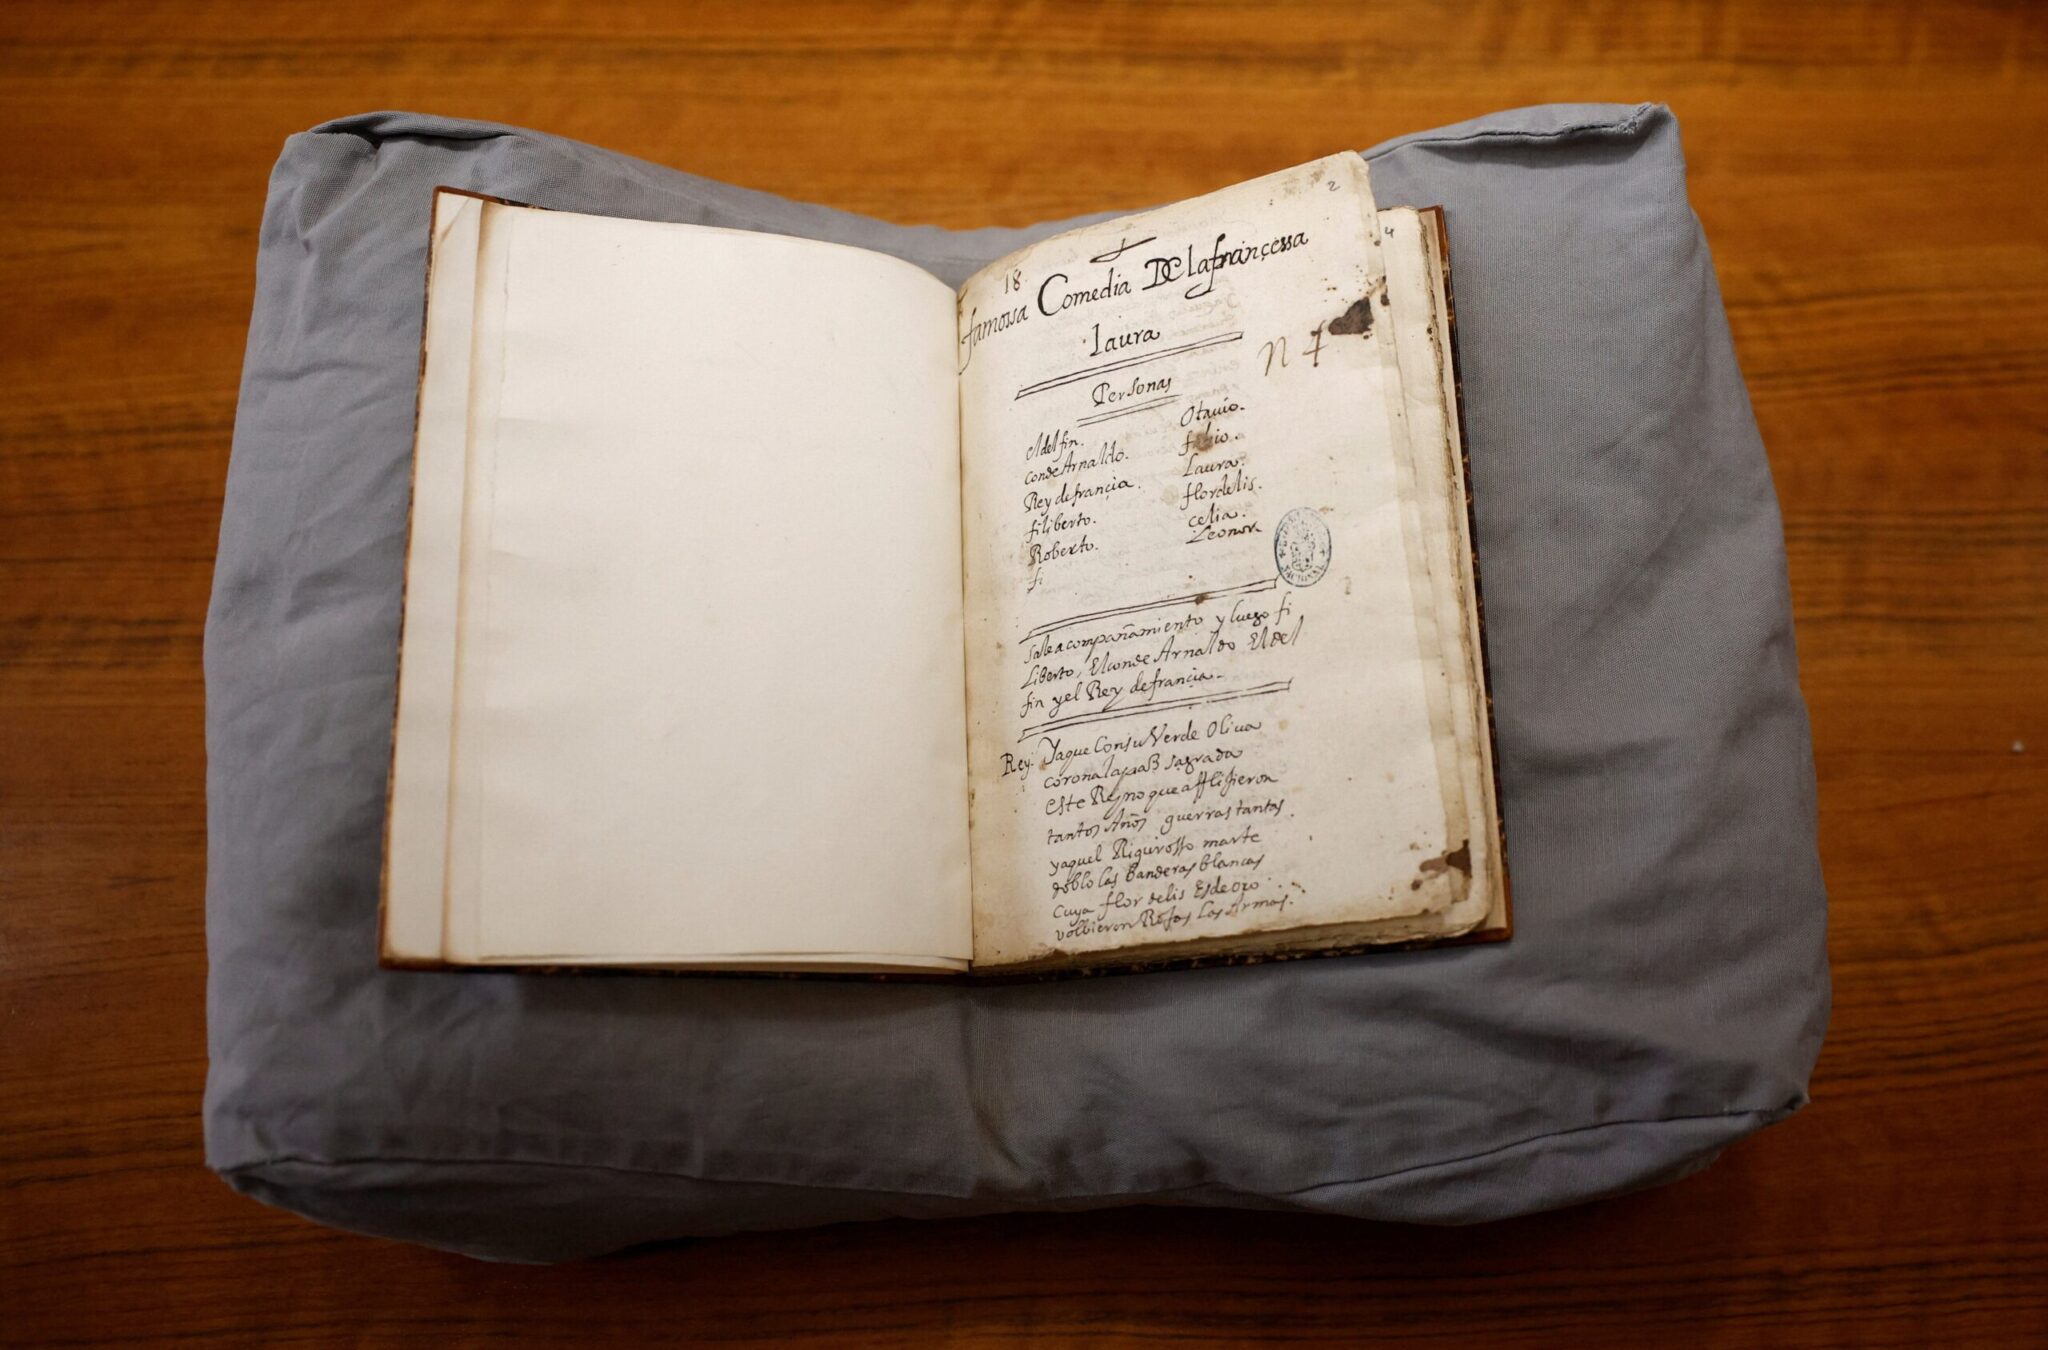 2
4
18
famossa Comedia De la francessa
laura
n 4
Personas
el delfin.
conde Arnaldo.
Rey de francia.
filiberto.
Roberto.
fi
Otauio.
fabio.
Laura.
flordelis.
celia.
Leonor
NACIONAL
sale acompañamiento y luego fi
liberto, El conde Arnaldo El del
fin y el Rey de francia.
Rey. Ya que Con su Verde Oliua
corona la paz sagrada
este Reyno que affligieron
tantos Años guerras tantas.
y aquel Rigurosso marte
doblo las banderas blancas
cuya flor de lis Es de oro
volbieron Rojas las Armas.